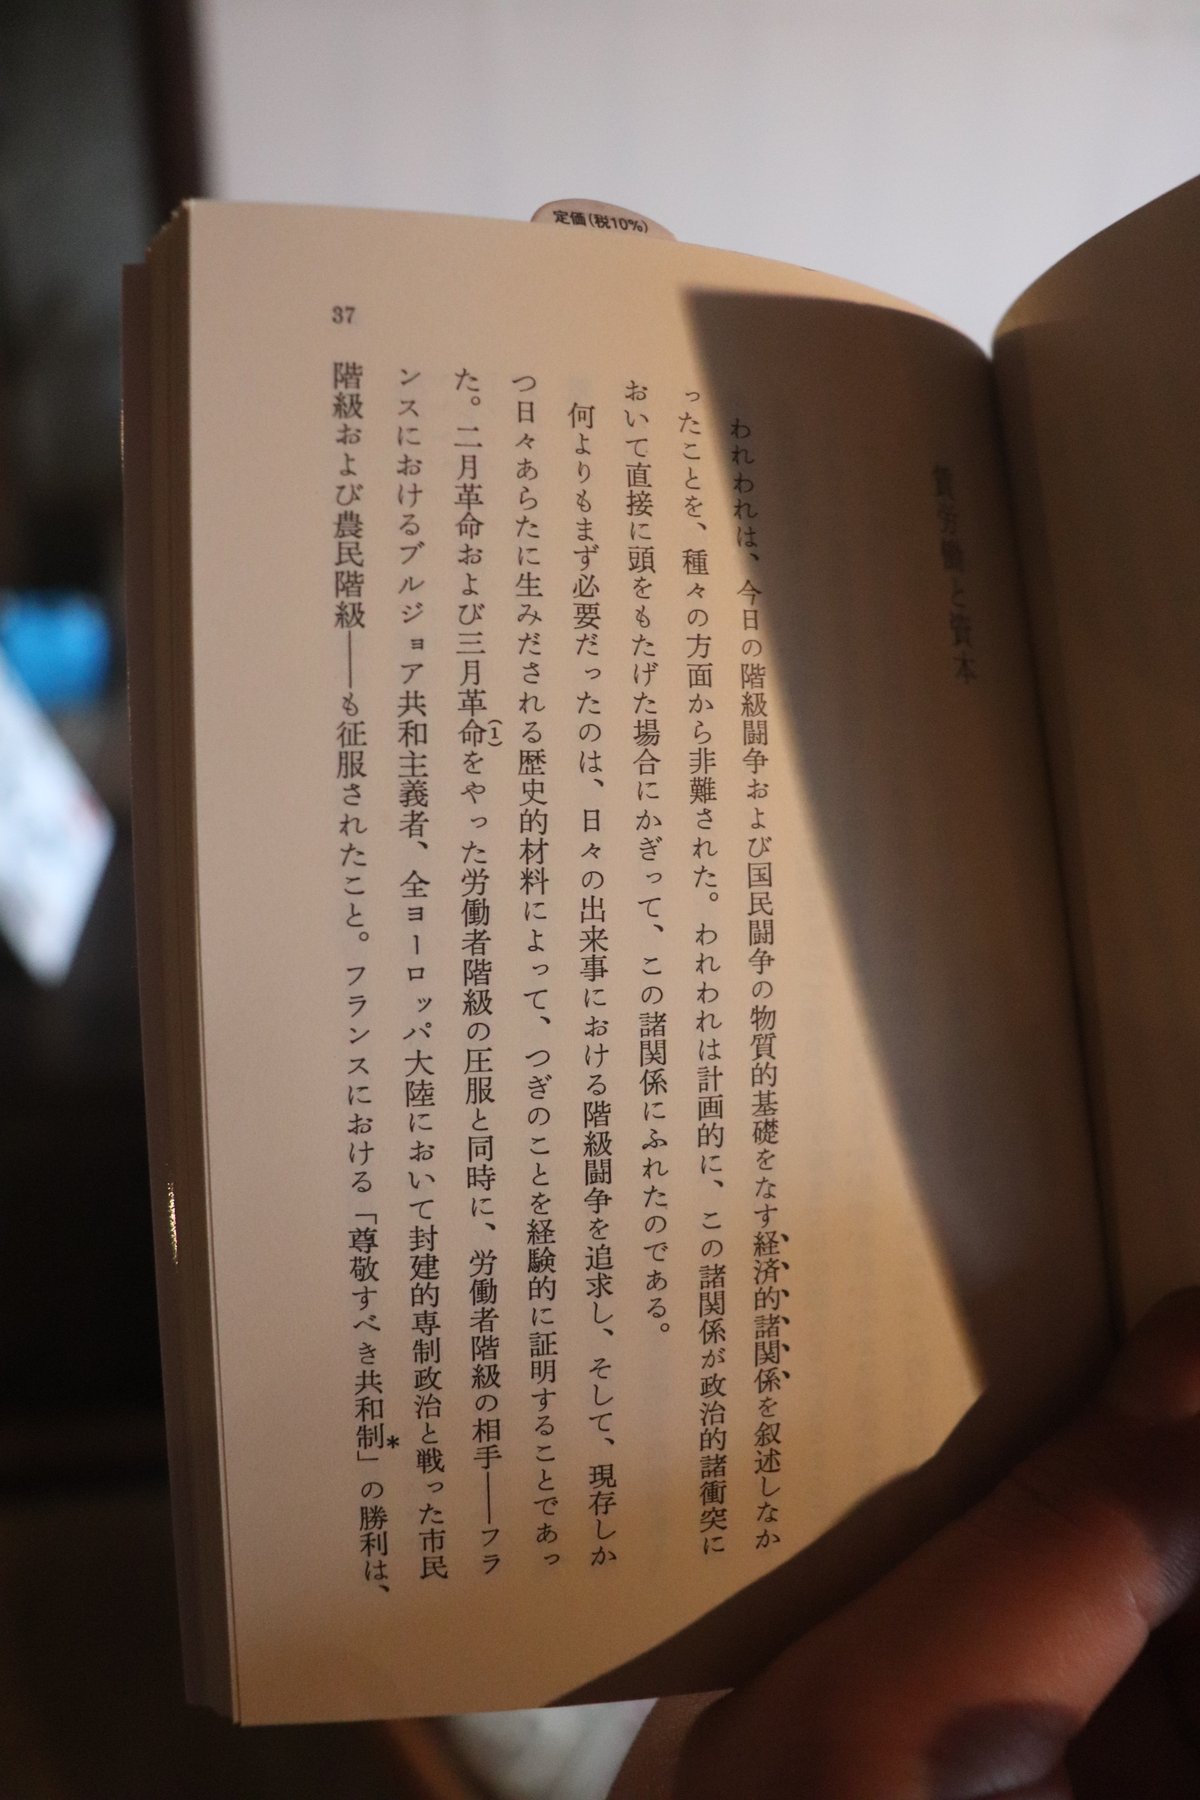 定価(税10%)
賃労働と資本
われわれは、今日の階級闘争および国民闘争の物質的基礎をなす経済的諸関係を叙述しなか
ったことを、種々の方面から非難された。われわれは計画的に、この諸関係が政治的諸衝突に
おいて直接に頭をもたげた場合にかぎって、この諸関係にふれたのである。
何よりもまず必要だったのは、日々の出来事における階級闘争を追求し、そして、現存しか
つ日々あらたに生みだされる歴史的材料によって、つぎのことを経験的に証明することであっ
た。二月革命および三月革命(1)をやった労働者階級の圧服と同時に、労働者階級の相手――フラ
ンスにおけるブルジョア共和主義者、全ヨーロッパ大陸において封建的専制政治と戦った市民
階級および農民階級――も征服されたこと。フランスにおける「尊敬すべき共和制*」の勝利は、
37